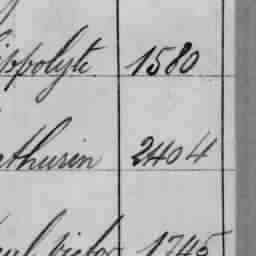 ippolyte 1580
athurin 2404
victor 1745